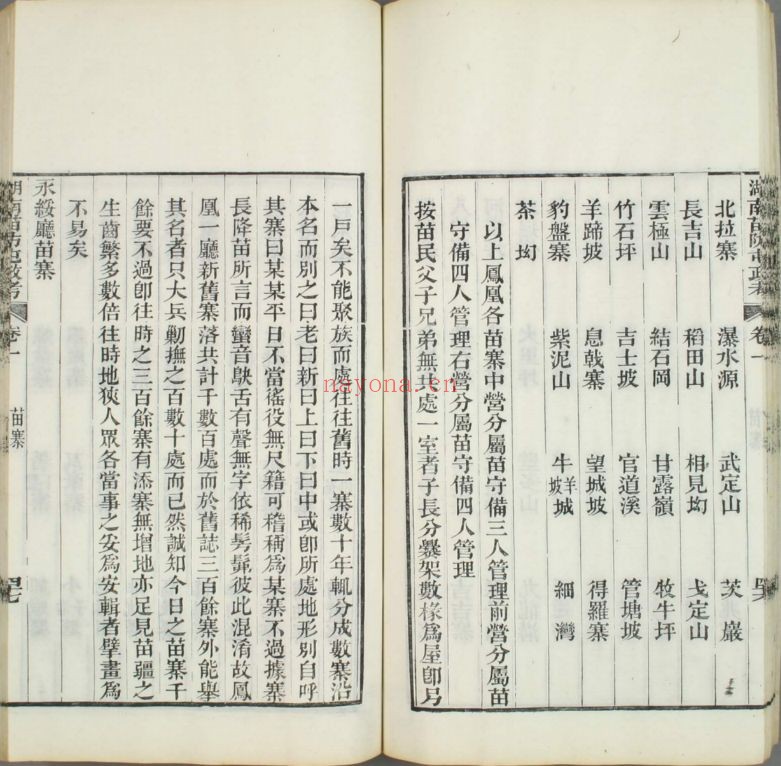 湖南苗防屯政考 卷一
北拉寨 瀑水源 武定山 茨巖
長吉山 稻田山 相見㘭 戈定山
雲極山 結石岡 甘露嶺 牧牛坪
竹石坪 吉士坡 官道溪 管塘坡
羊蹄坡 息戟寨 望城坡 得羅寨
豹盤寨 紫泥山 牛羊坡城 細灣
茶㘭
以上鳳凰各苗寨中營分屬苗守備三人管理前營分屬苗
守備四人管理右營分屬苗守備四人管理
按苗民父子兄弟無共處一室者子長分爨架數椽爲屋卽另
一戶矣不能聚族而處往往舊時一寨數十年輒分成數寨沿
本名而別之曰老曰新曰上曰下曰中或卽所處地形別自呼
其寨曰某某平日不當徭役無尺籍可稽稱爲某寨不過據寨
長降苗所言而蠻音鴃舌有聲無字依稀髣髴彼此混淆故鳳
凰一廳新舊寨落共計千數百處而於舊誌三百餘寨外能舉
其名者只大兵勦撫之百數十處而已然誠知今日之苗寨千
餘要不過卽往時之三百餘寨有添寨無增地亦足見苗疆之
生齒繁多數倍往時地狹人眾各當事之安爲安輯者擘畫爲
不易矣
永綏廳苗寨
湖南苗防屯政考 卷一 苗寨
nayona.cn